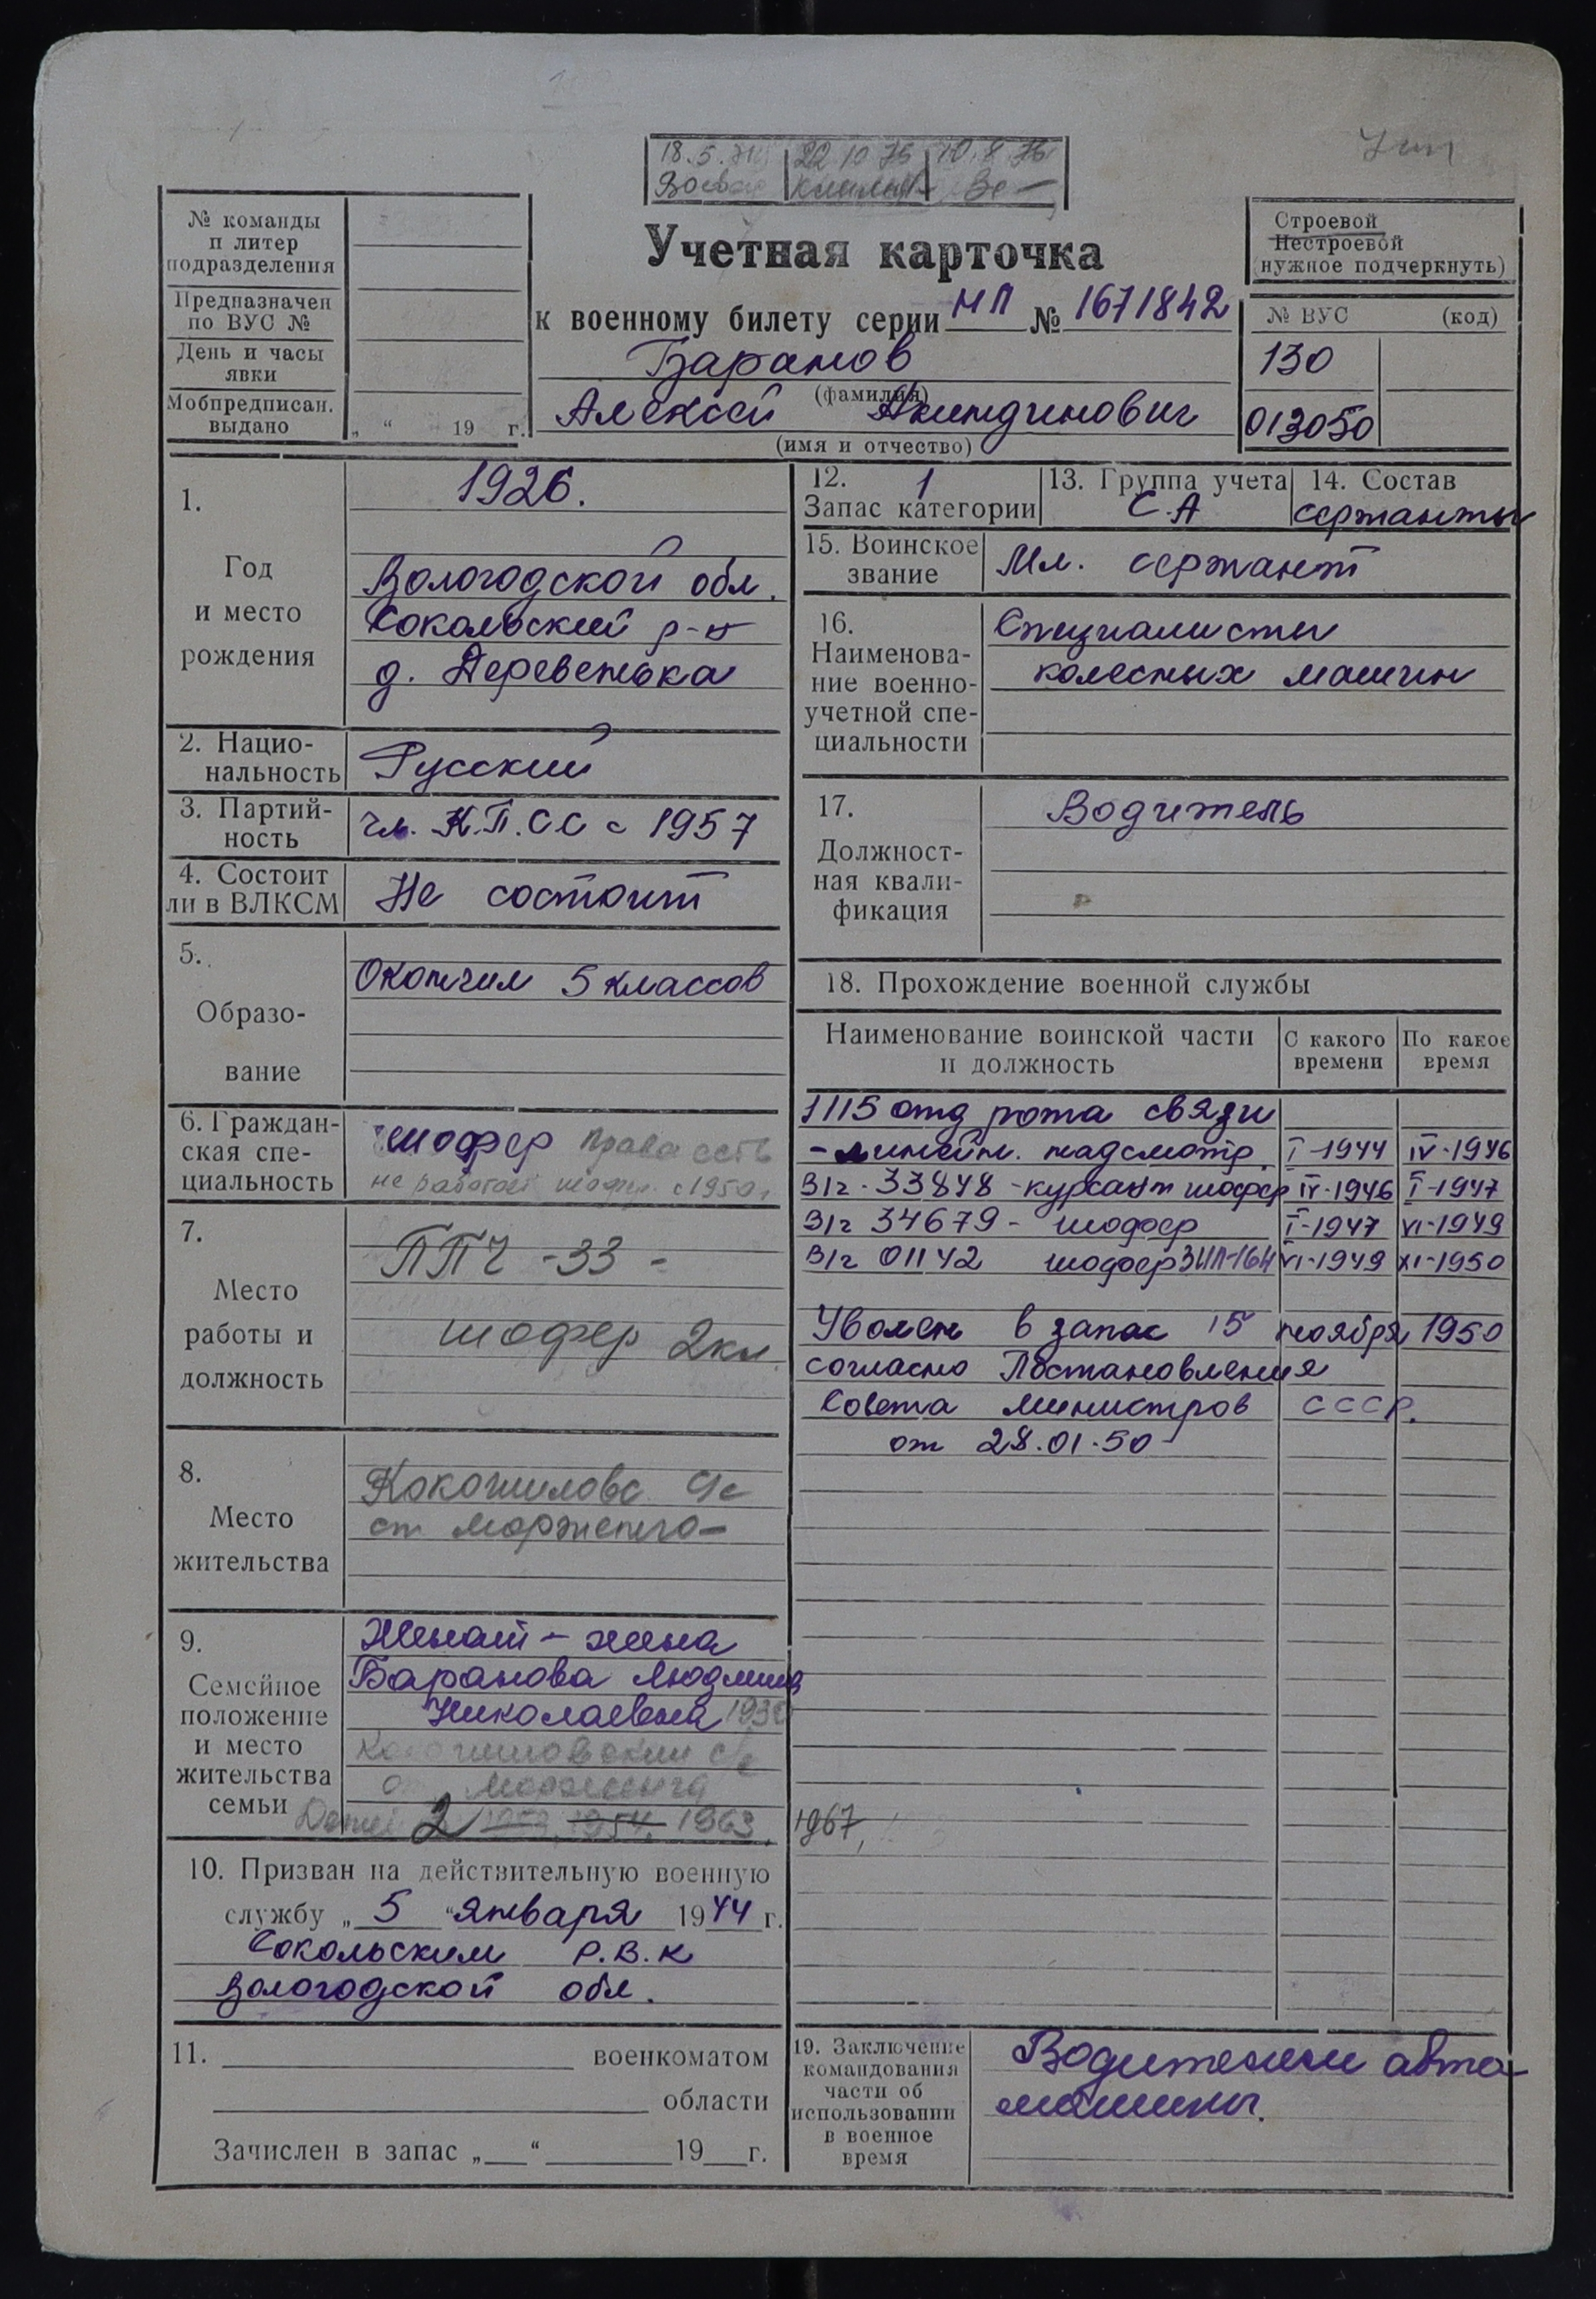 18.5. 22 10 75 10.8.76
№ команды
п литер
подразделения
Предназначен
по ВУС №
День и часы
явки
Мобпредписан.
выдано
„ “ 19 г.
Учетная карточка
к военному билету серии НП № 1671842
Баранов
(фамилия)
Алексей Акиндинович
(имя и отчество)
Строевой
Нестроевой
(нужное подчеркнуть)
№ ВУС (код)
130
013050
1.
Год
и место
рождения
1926.
Вологодской обл.
Сокольский р-н
д. Деревенька
2. Нацио-
нальность
Русский
3. Партий-
ность
чл. К.П.СС с 1957
4. Состоит
ли в ВЛКСМ
Не состоит
5.
Образо-
вание
Окончил 5 классов
6. Граждан-
ская спе-
циальность
шофер права есть
не работает шофер. с 1950г
7.
Место
работы и
должность
ППЧ -33 -
шофер 2кл.
8.
Место
жительства
ст Морженга-
9.
Семейное
положение
и место
жительства
семьи
Женат - жена
Баранова Людмила
Николаевна
Морженга
Детей 2 1954, 1963, 1967,
10. Призван на действительную военную
службу „ 5 “ января 1944 г.
Сокольским Р.В.К
Вологодской обл.
11. военкоматом
области
Зачислен в запас „ “ 19 г.
12. 1
Запас категории
13. Группа учета
С.А
14. Состав
сержанты
15. Воинское
звание
Мл. сержант
16.
Наименова-
ние военно-
учетной спе-
циальности
Специалисты
колесных машин
17.
Должност-
ная квали-
фикация
Водитель
18. Прохождение военной службы
Наименование воинской части
и должность
С какого
времени
По какое
время
1115 отд рота связи
- линейн. надсмотр. I-1944 IV-1946
В/ч 33848 - курсант шофер IV-1946 I-1947
В/ч 34679 - шофер I-1947 VI-1949
В/ч 01142 шофер ЗИЛ-164 VI-1949 XI-1950
Уволен в запас 15 ноября 1950
согласно Постановления
Совета Министров СССР.
от 28.01.50
19. Заключение
командования
части об
использовании
в военное
время
Водителем авто-
машины.